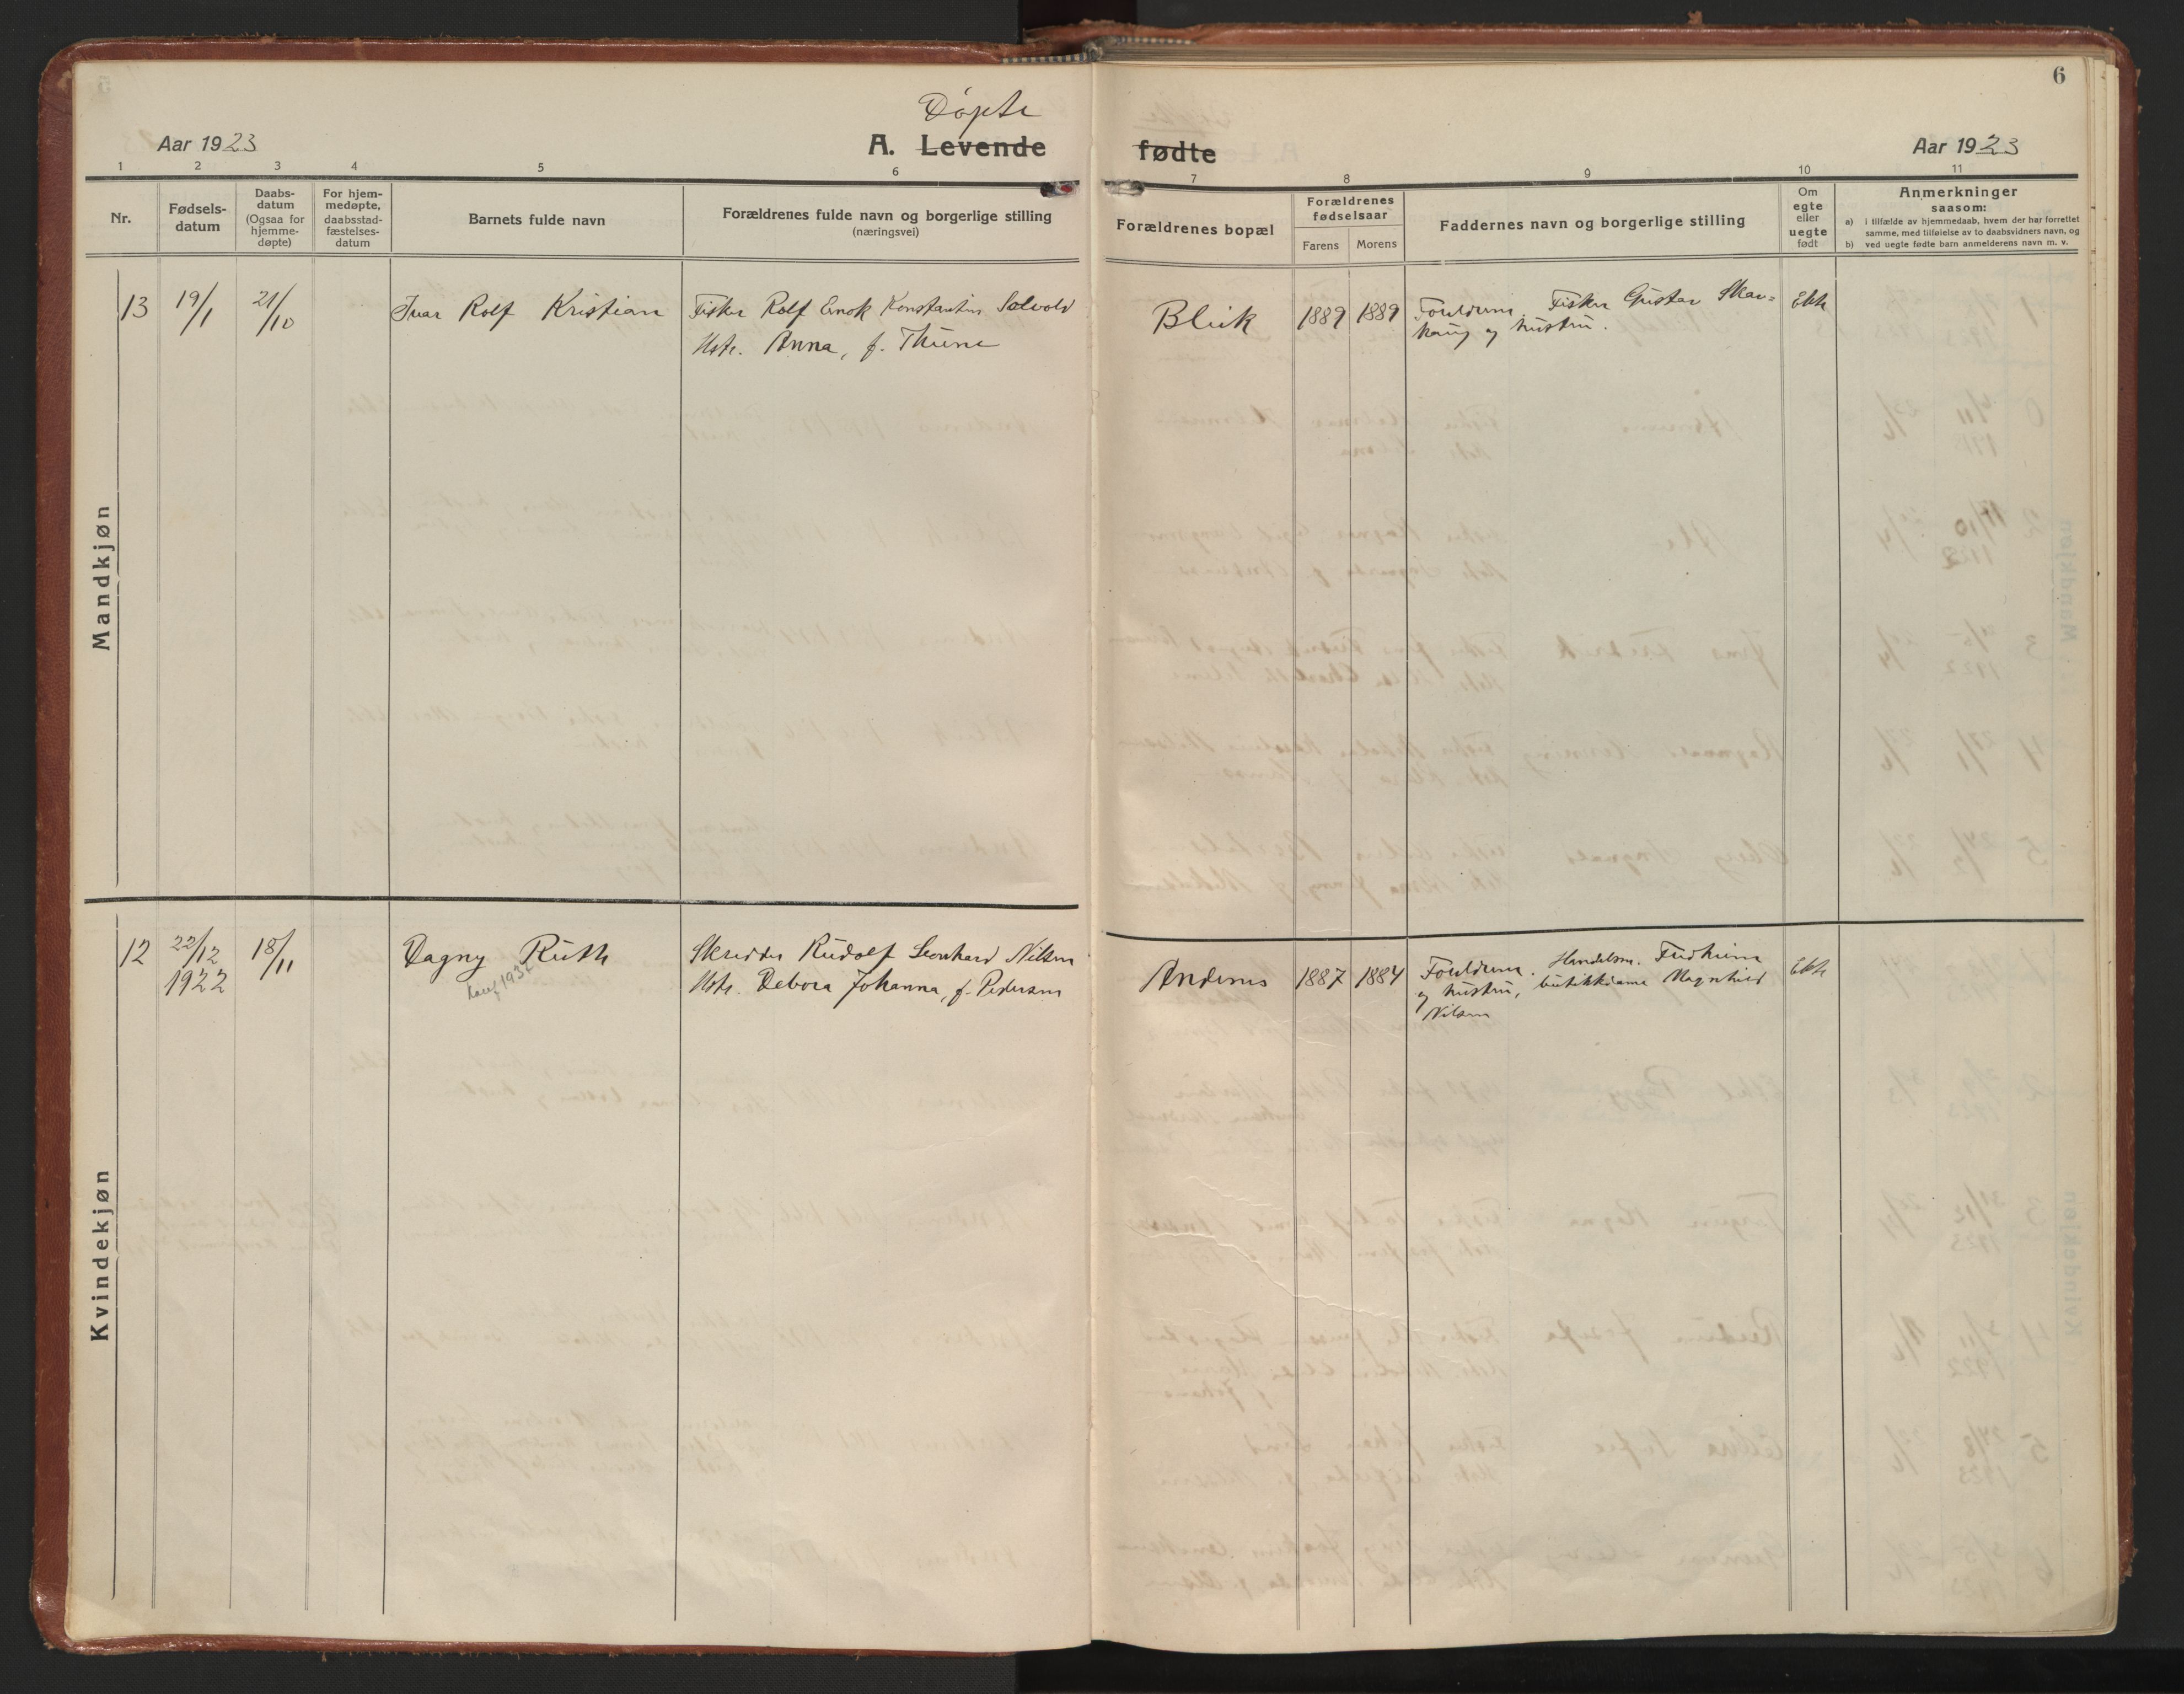 6
Døpte
Aar 1923
A. Levende fødte
Aar 1923
1 2 3 4 5 6 7 8 9 10 11
Nr.
Fødsels-
datum
Daabs-
datum
(Ogsaa for
hjemme-
døpte)
For hjem-
medøpte,
daabsstad-
fæstelses-
datum
Barnets fulde navn
Forældrenes fulde navn og borgerlige stilling
(næringsvei)
Forældrenes bopæl
Forældrenes
fødselsaar
Farens Morens
Faddernes navn og borgerlige stilling
Om
egte
eller
uegte
født
Anmerkninger
saasom:
a) i tilfælde av hjemmedaab, hvem der har forrettet
samme, med tilføielse av to daabsvidners navn, og
b) ved uegte fødte barn anmelderens navn m. v.
Mandkjøn
13 19/1 21/10 Ivar Rolf Kristian
Fisker Rolf Enok Konstantin Solvold
Hstr. Anna, f. Thune
Bleik 1889 1889
Foreldrene, Fisker Gustav Skar=
haug og hustru.
Ekte
Kvindekjøn
12 22/12 1922 18/11 Dagny Ruth
konf. 1937
Skredder Rudolf Leonhard Nilsen
Hstr. Debora Johanna, f. Pedersen
Andenes 1887 1884
Foreldrene. Handelsm. Fredheim
og hustru, butikkdame Magnhild
Nilsen
Ekte